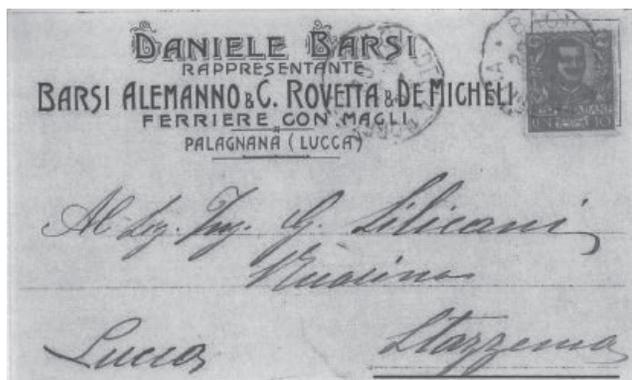 DANIELE BARSI
RAPPRESENTANTE
BARSI ALEMANNO & C. ROVETTA & DE MICHELI
FERRIERE CON MAGLI
PALAGNANA (LUCCA)
Al Sig. Ing. G. Silicani
Ruosina
Lucca Stazzema